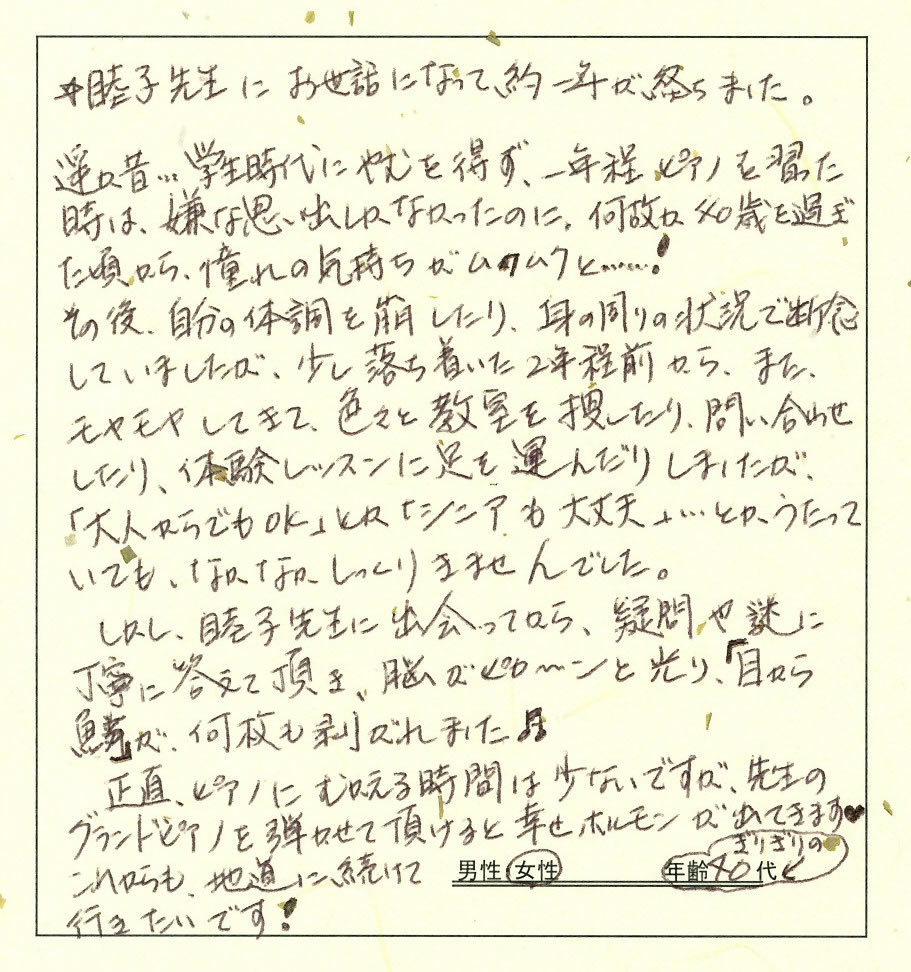 *睦子先生に お世話になって、約一年が経ちました。
遥か昔…学生時代にやむを得ず、一年程 ピアノを習った
時は、嫌な思い出しかなかったのに、何故か40歳を過ぎ
た頃から、憧れの気持ちがムクムクと……!
その後、自分の体調を崩したり、身の周りの状況で断念
していましたが、少し落ち着いた2年程前から、また、
モヤモヤしてきて、色々と教室を捜したり、問い合わせ
したり、体験レッスンに足を運んだりしましたが、
「大人からでもOK」とか「シニアも大丈夫」…とか、うたって
いても、なかなか、しっくりきませんでした。
しかし、睦子先生に出会ってから、疑問や謎に
丁寧に答えて頂き、脳がピカ〜ンと光り、「目から
鱗」が、何枚も剥がれました♫
正直、ピアノにむかえる時間は少ないですが、先生の
グランドピアノを弾かせて頂けると幸せホルモンが出てきます♥
これからも、地道に続けて
行きたいです!
男性・女性
ぎりぎりの
年齢40代